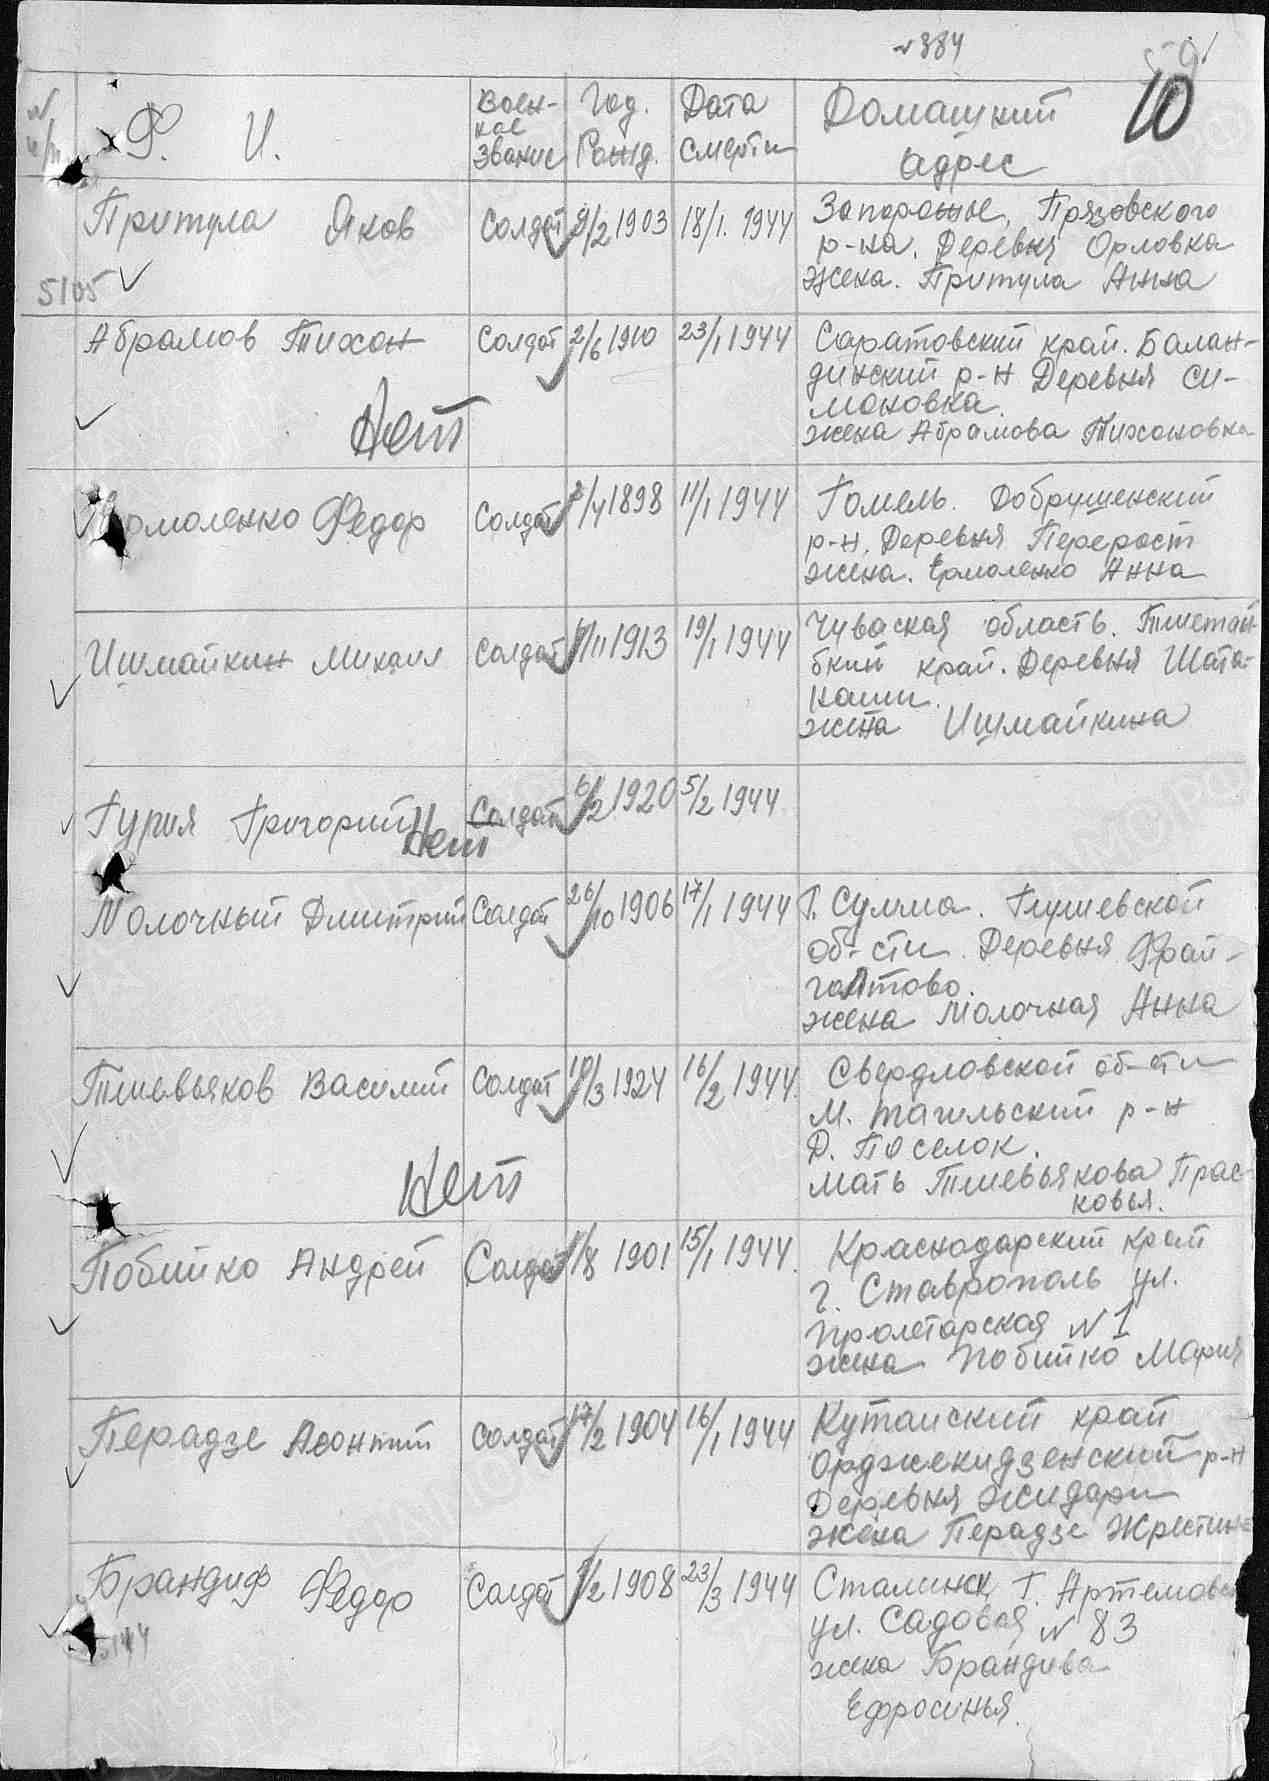 № 384
10
№ п/п
Ф. И.
Воен-
ное
звание
Год.
Рожд.
Дата
смерти
Домашний
адрес
Притула Яков Солдат 9/2 1903 18/1. 1944 Запорожье, Прязовского
р-на. Деревня Орловка
жена. Притула Анна
5105
Абрамов Тихон Солдат 2/6 1910 23/1 1944 Саратовский край. Балан-
динский р-н Деревня Си-
моновка.
жена Абрамова Тихоновка
Нет
Ермоленко Федор Солдат /4 1898 11/1 1944 Гомель. Добрушенский
р-н. Деревня Перерост
жена. Ермоленко Анна
Ишмайкин Михаил Солдат /11 1913 19/1 1944 Чуваская область. Тшетай-
бкий край. Деревня Шата-
каши.
жена Ишмайкина
Гурия Григорий Солдат 6/2 1920 5/2 1944
Нет
Молочный Дмитрий Солдат 26/10 1906 17/1 1944 Г. Сумма. Глушевской
об-сти. Деревня Фрай-
голтово.
жена Молочная Анна
Тшевьяков Василий Солдат 10/3 1924 16/2 1944. Свердловской об-сти
М. тагильский р-н
Д. Поселок.
мать Тшевьякова Прас-
ковья.
Нет
Побийко Андрей Солдат /8 1901 15/1 1944. Краснодарский край
г. Ставрополь ул.
Пролетарская № 1
жена Побийко Мария
Перадзе Леонтий Солдат 17/2 1904 16/1 1944 Кутаиский край
Орджекидзенский р-н
Деревня Жидари
жена Перадзе Жрестине
Брандиф Федор Солдат /2 1908 23/3 1944 Сталинск, Г. Артемовск
ул. Садовая № 83
жена Брандива
Ефросинья.
5144